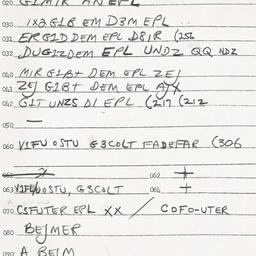 020 G1M1R AN EPL
030 1X2 G1B EM D3M EPL
031 ERG1D DEM EPL D81R (256
032 DUG1ZDEM EPL UNDZ QQ NDZ
040 M1R G1B+ DEM EPL ZEJ
041 ZEJ G1B+ DEM EPL
042 G1T UNZS D1 EPL (217 (212
050 —
060 V1FU OSTU G3COLT FADEFAR (306
062 +
063 OSTU, G3COLT 064 +
070 CSFUTER EPL XX / COFO-UTER
080 BEJMER
090 A BEJM